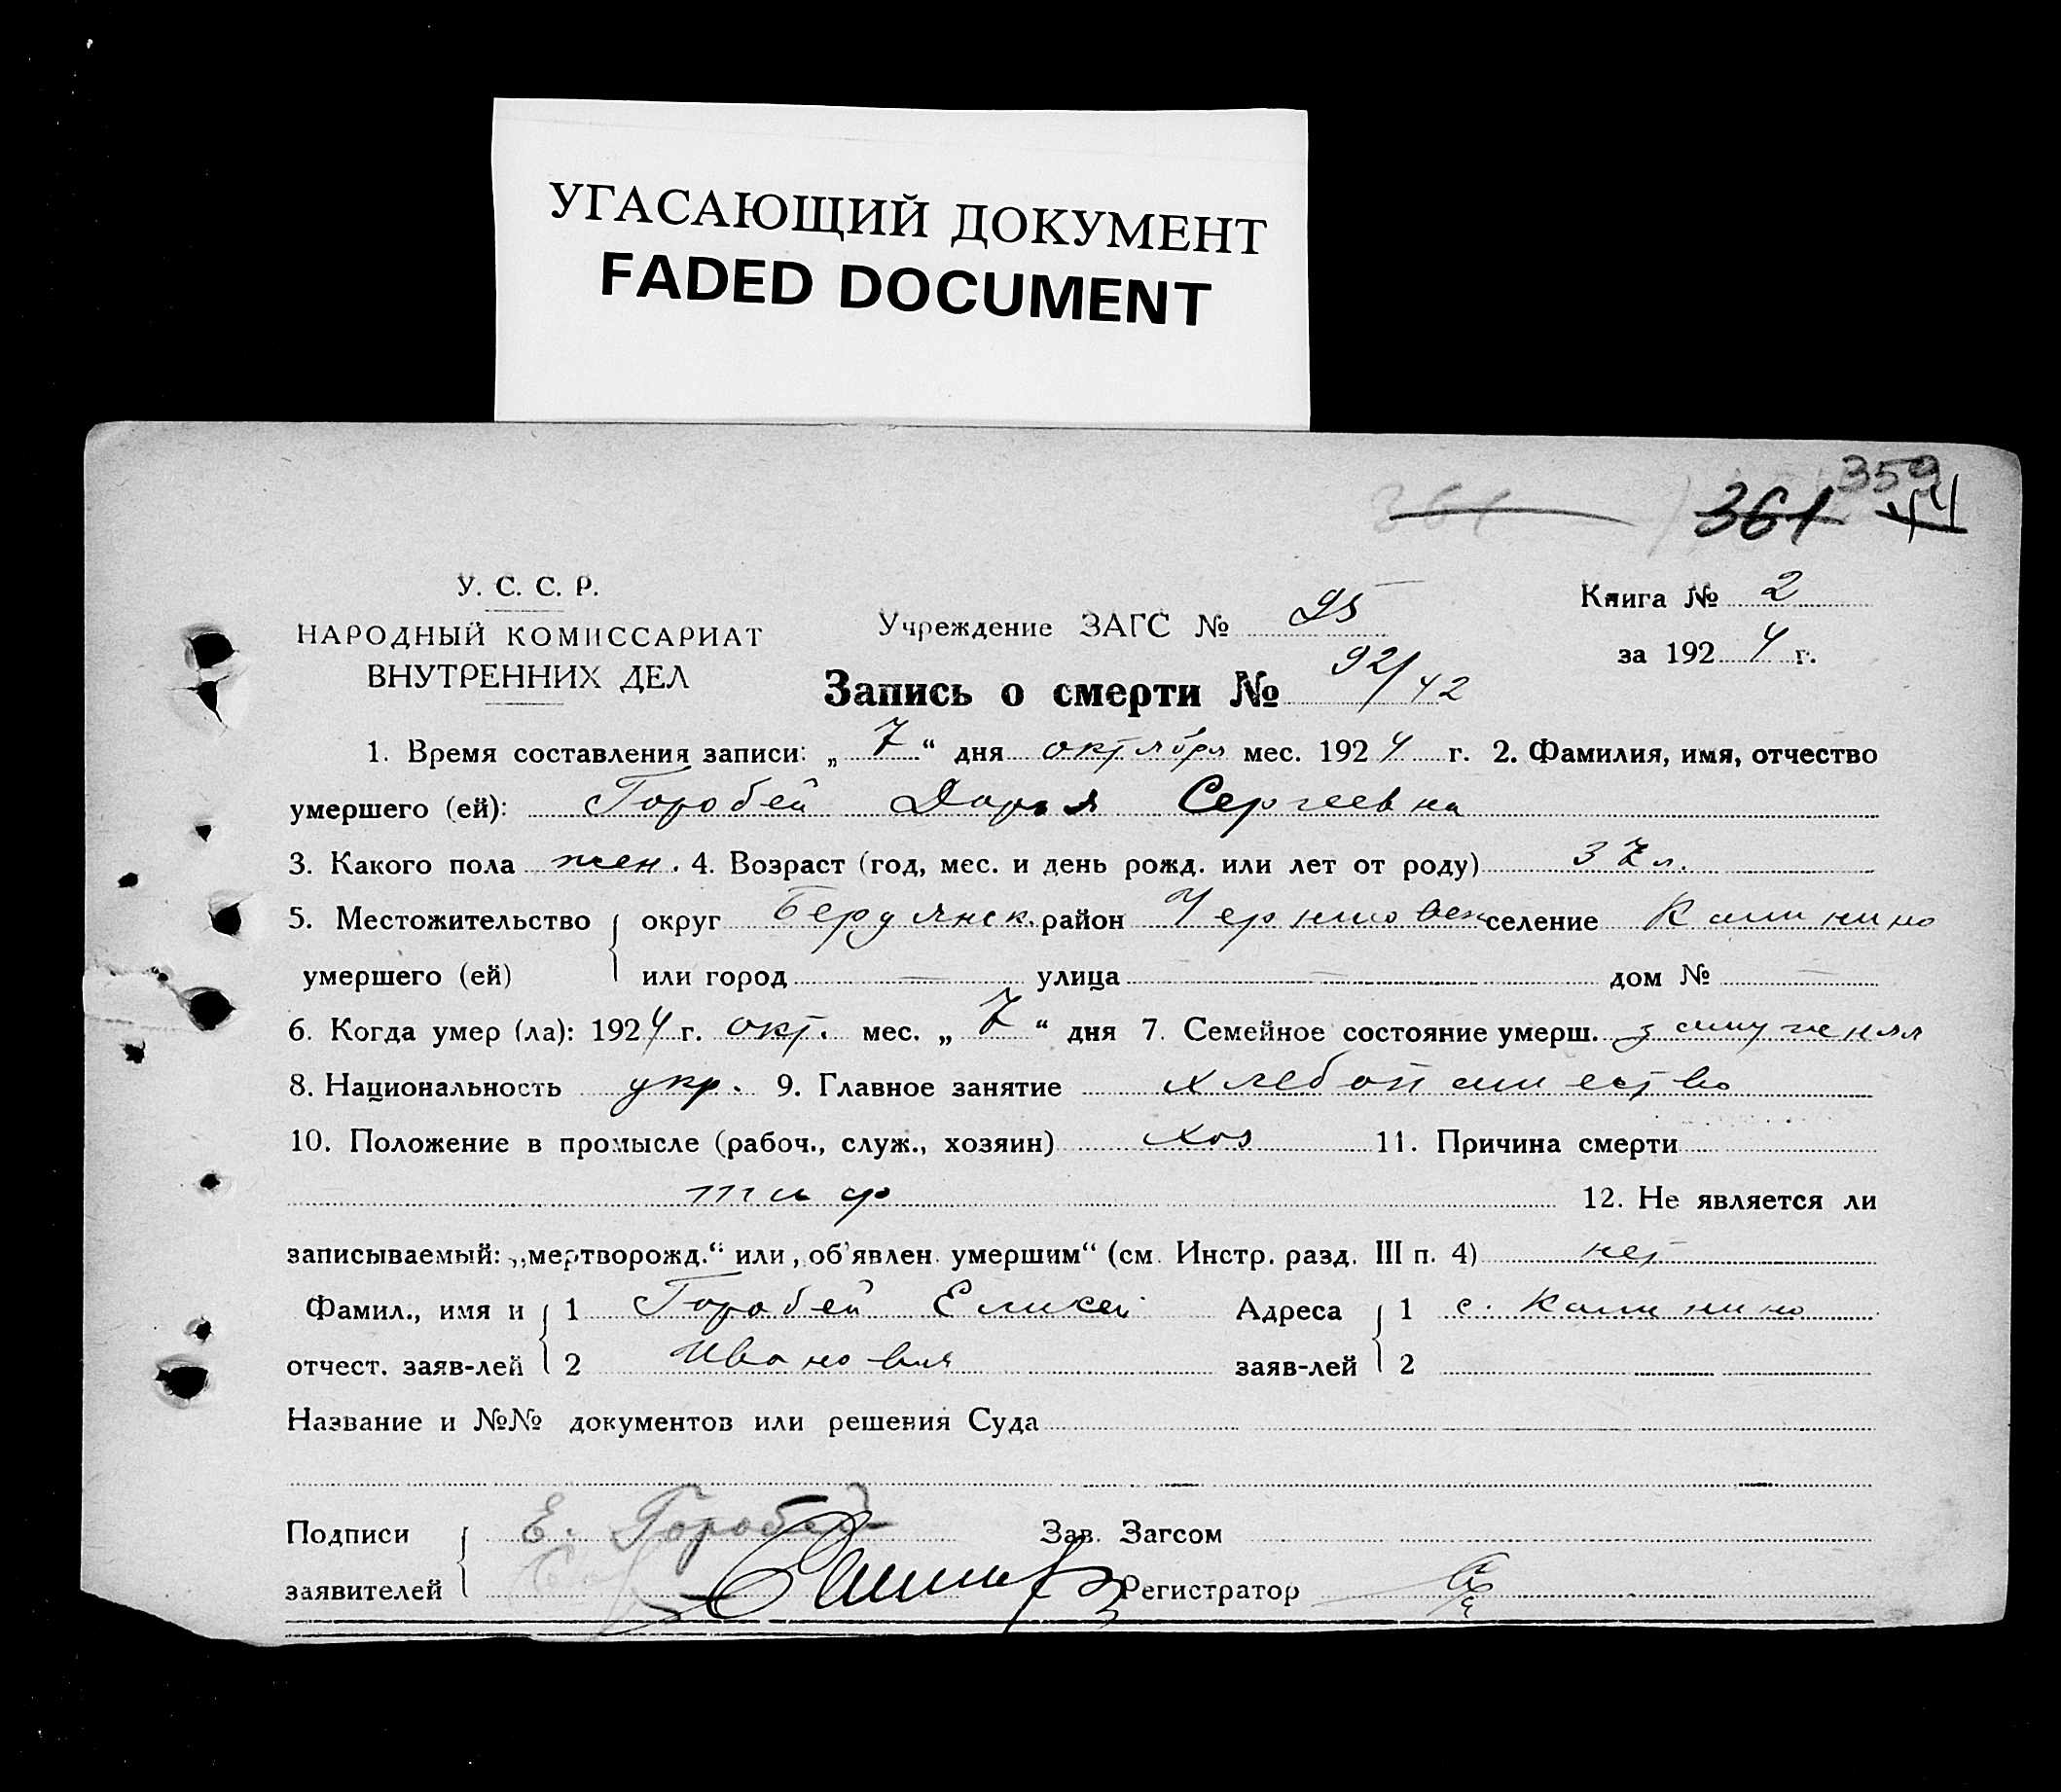 УГАСАЮЩИЙ ДОКУМЕНТ
FADED DOCUMENT
359
361 361 44
У. С. С. Р.
НАРОДНЫЙ КОМИССАРИАТ
ВНУТРЕННИХ ДЕЛ
Учреждение ЗАГС № 95
Книга № 2
за 1924 г.
Запись о смерти № 92/42
1. Время составления записи: „7“ дня октября мес. 1924 г. 2. Фамилия, имя, отчество
умершего (ей): Горобей Дарья Сергеевна
3. Какого пола жен. 4. Возраст (год, мес. и день рожд. или лет от роду) 37 л.
5. Местожительство округ Бердянск. район Черниговск селение Калинино
умершего (ей) или город — улица — дом № —
6. Когда умер (ла): 1924 г. окт. мес. „7“ дня 7. Семейное состояние умерш. замужняя
8. Национальность укр. 9. Главное занятие хлебопашество
10. Положение в промысле (рабоч., служ., хозяин) хоз 11. Причина смерти
тиф 12. Не является ли
записываемый: „мертворожд.“ или „об'явлен. умершим“ (см. Инстр. разд. III п. 4) нет
Фамил., имя и 1 Горобей Адреса 1 с. Калинино
отчест. заяв-лей 2 Иванович заяв-лей 2
Название и №№ документов или решения Суда
Подписи Е. Горобей Зав. Загсом
заявителей Регистратор